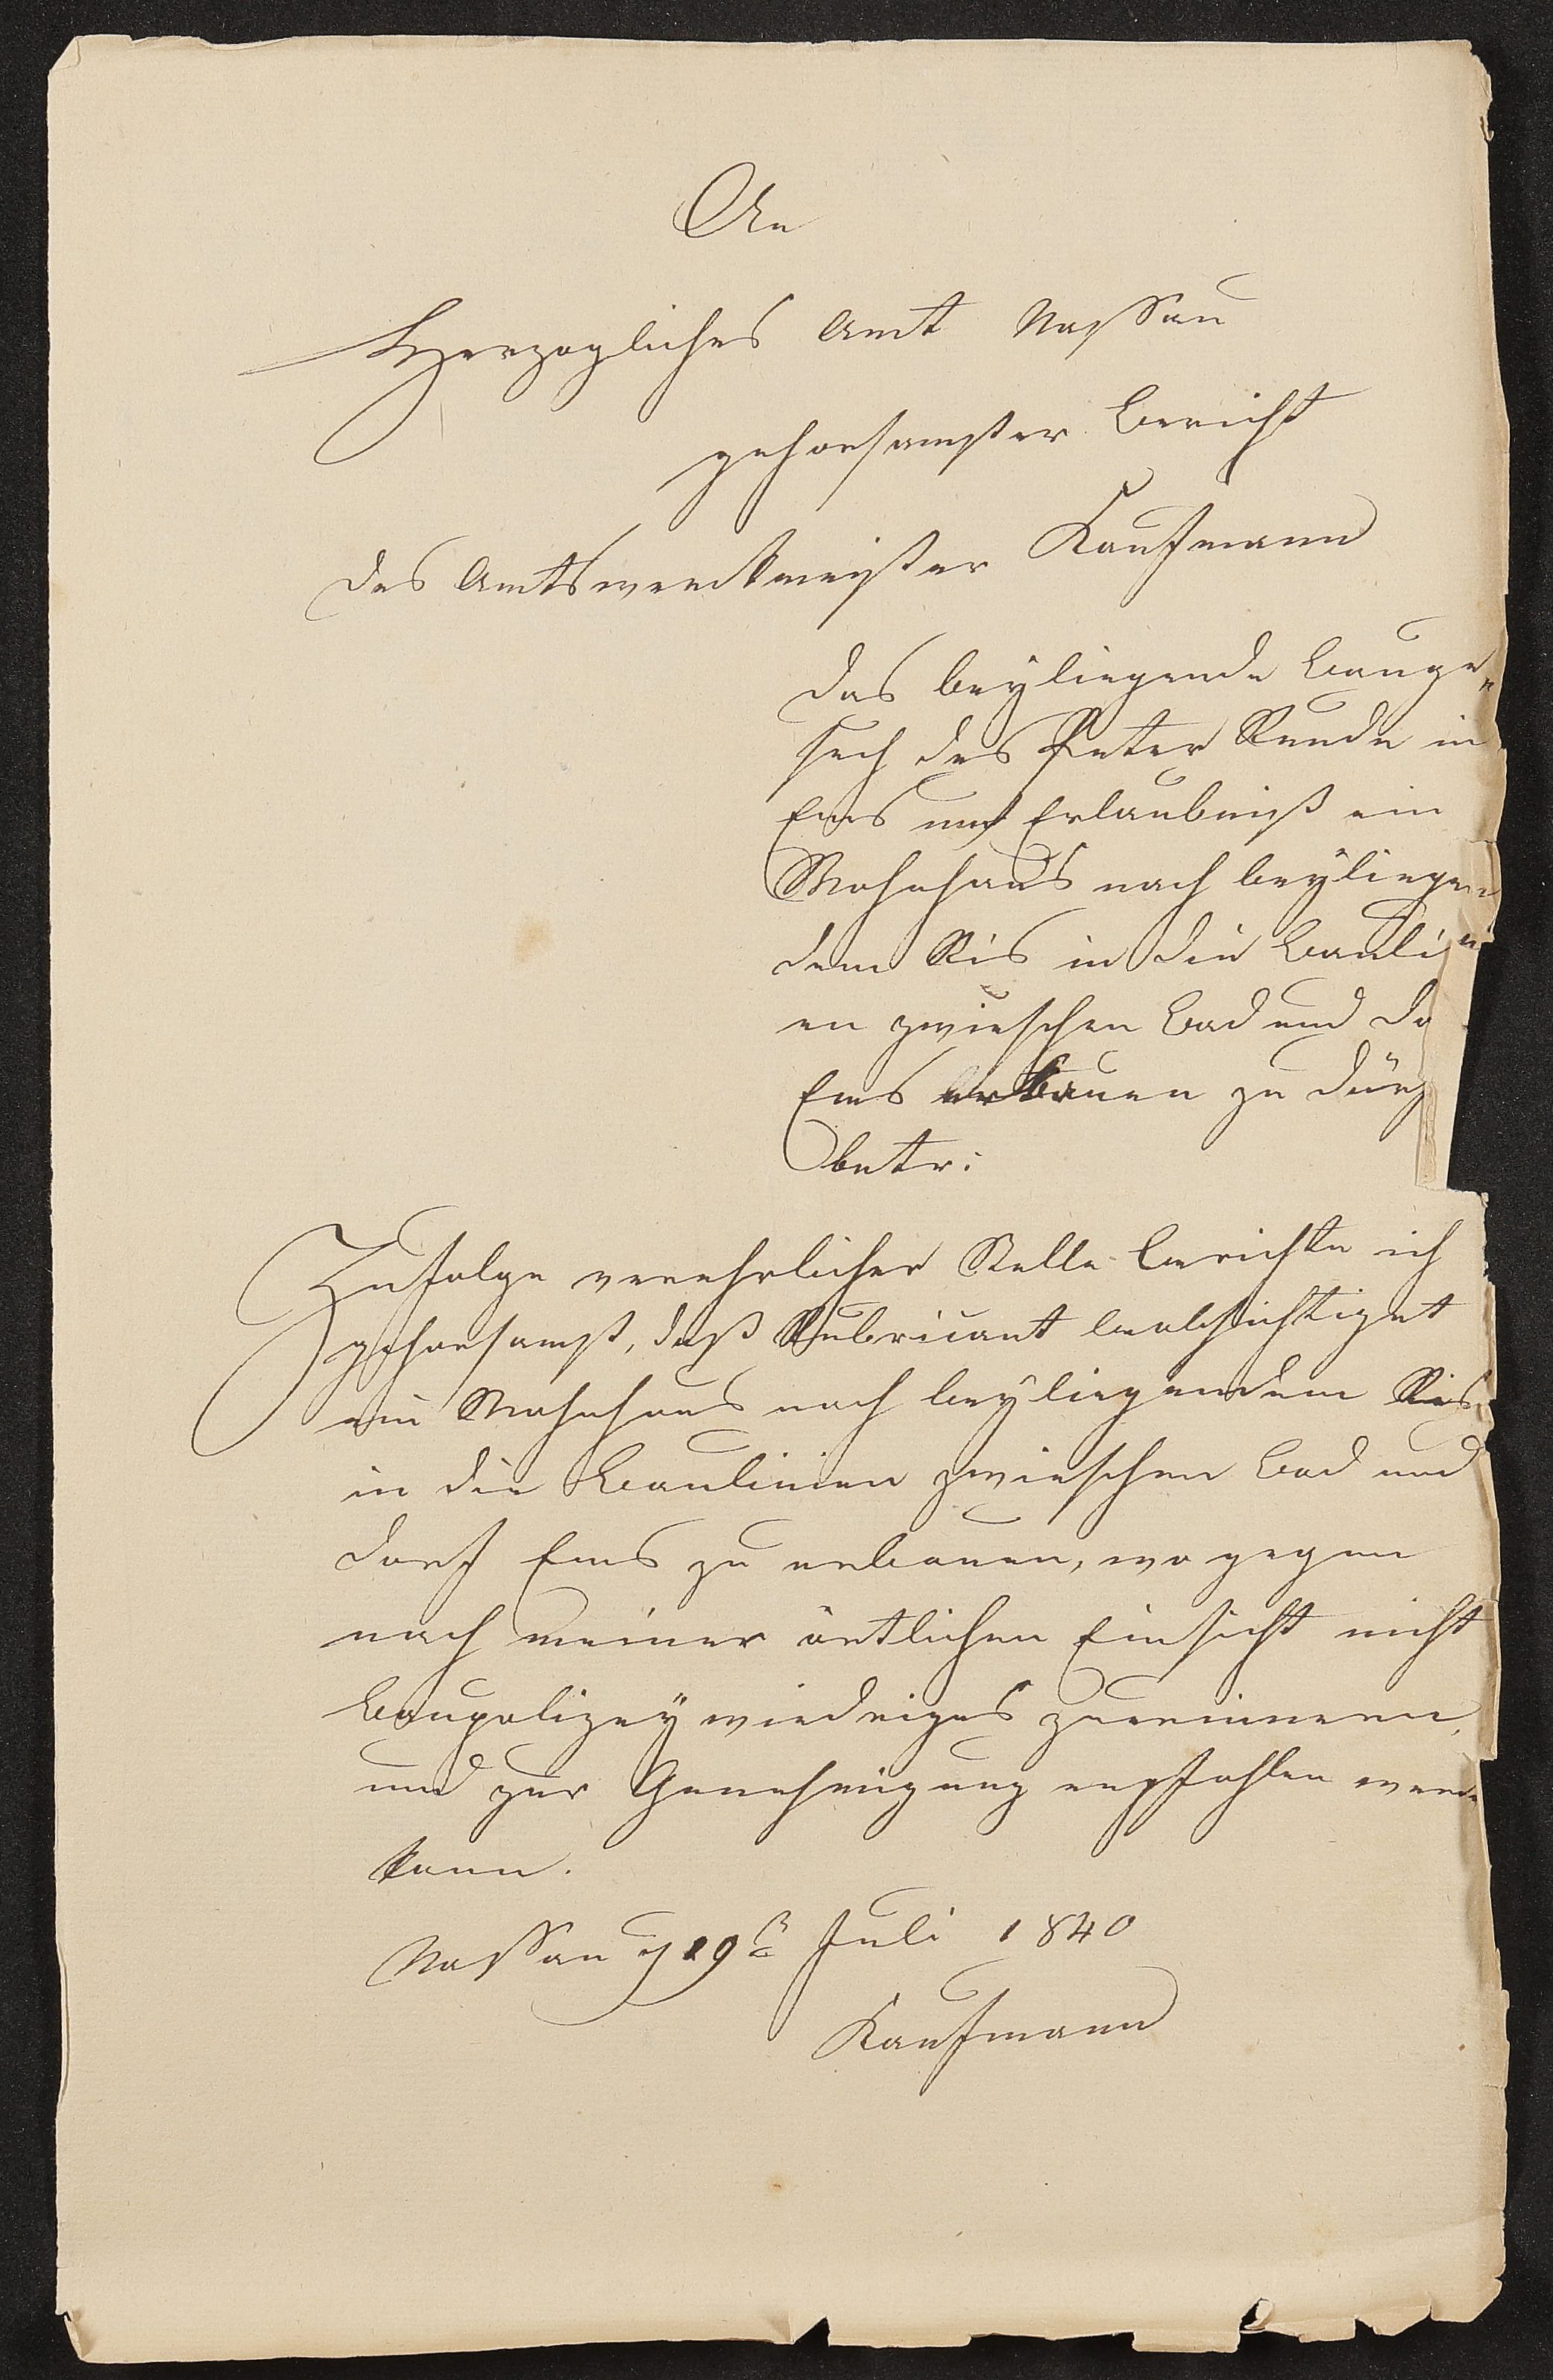 An
Herzogliches Amt Nassau
gehorsamster Bericht
des Amtswerkmeister Kaufmann
das beyliegende Bauge„
such des Peter Runde in
Ems um Erlaubniß ein
Wohnhaus nach beyliegen
dem Ris in die Bauli
en zwieschen Bad und Do
Ems erbauen zu dürf
betr:
Zufolge verehrlicher Stelle berichte ich
gehorsamst, daß Rubricant beabsichtiget
ein Wohnhaus nach beyliegendem Ris
in die Baulinien zwieschen Bad und
dorf Ems zu erbauen, wo gegen
nach meiner örtlichen Einsicht nicht
Baupolizey wiedriges zuerinnern,
und zur Genehmigung empfohlen werde
kann.
Nassau 19 Juli 1840
Kaufmann